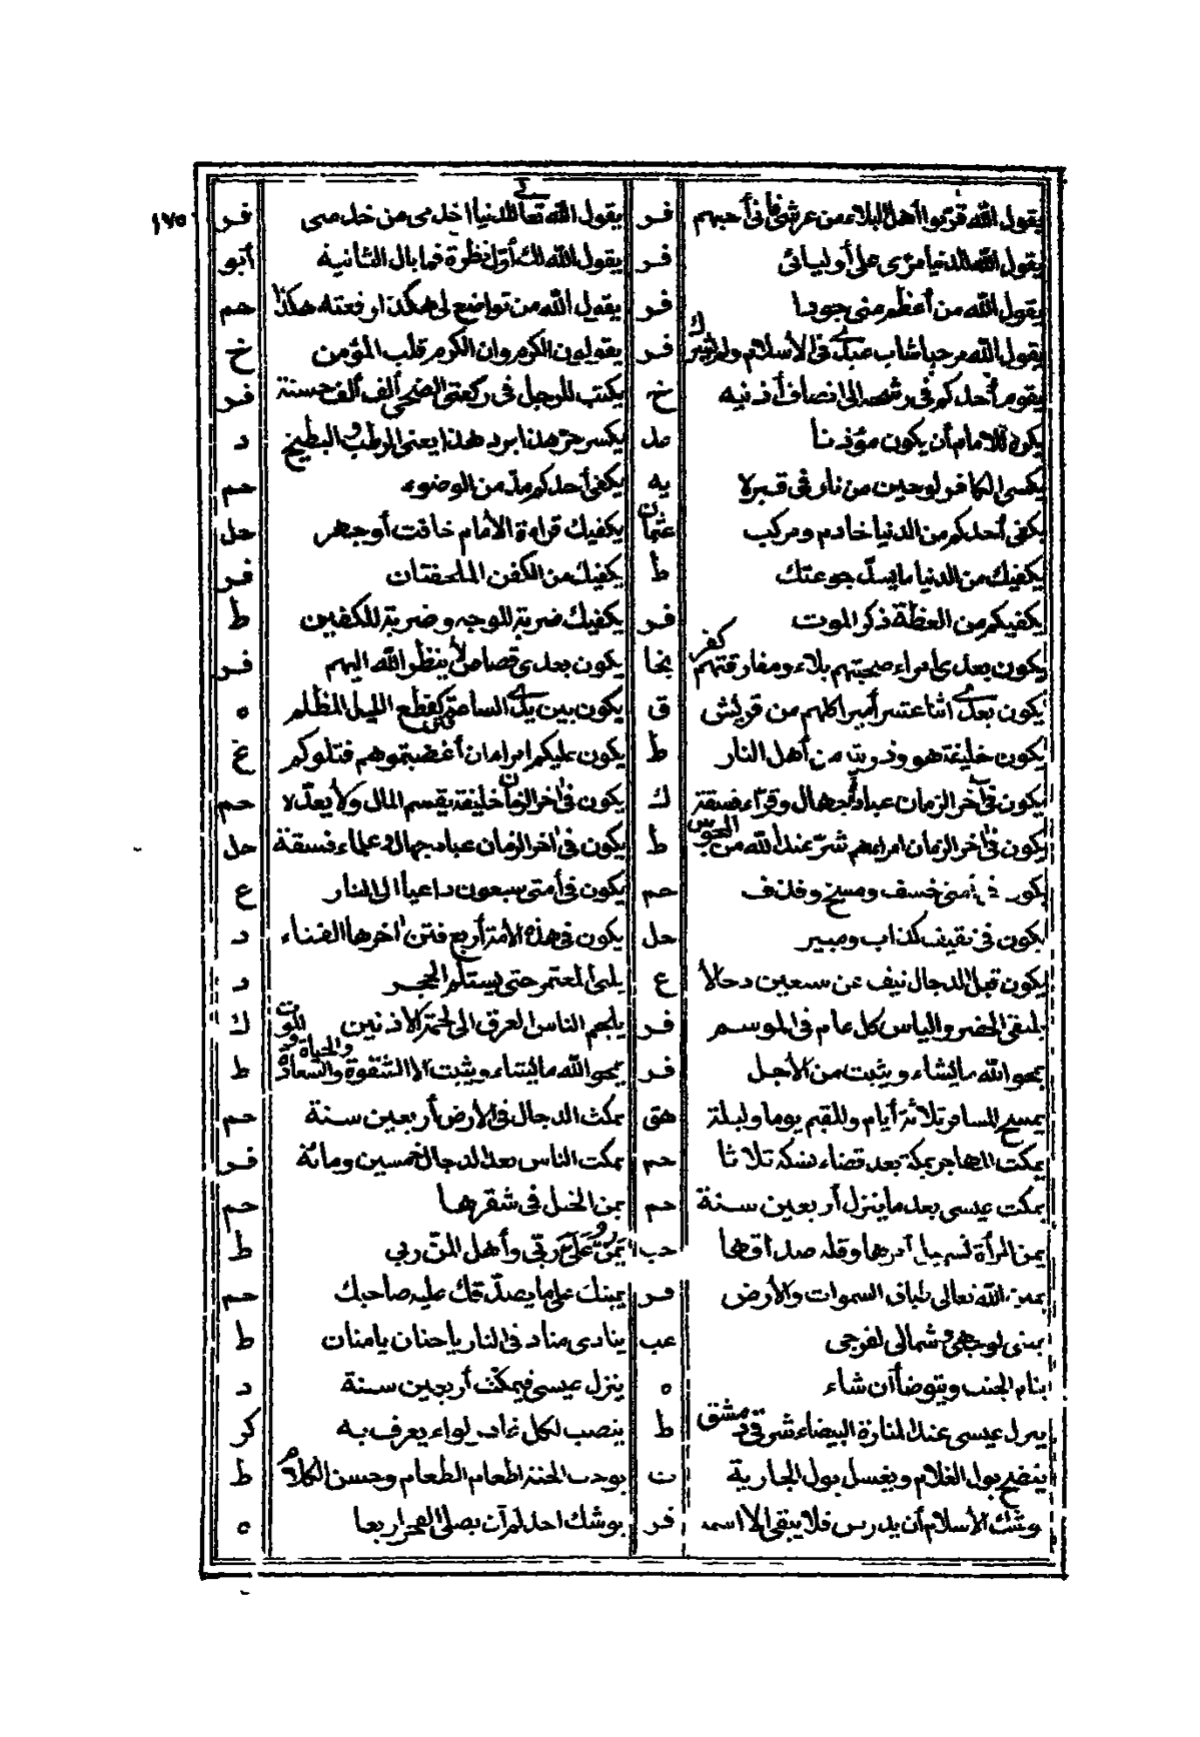 ١٧٥
يقول الله قربوا أهل البلاء من عرشي فإني أحبهم فر يقول الله تعالى للدنيا اخدمي من خدمني فر
يقول الله للدنيا مرّى على أوليائى فر يقول الله لك أول نظرة فما بال الثانية أبو
يقول الله من أعظم منى جودا فر يقول الله من تواضع لى هكذا رفعته هكذا حم
يقول الله مرحبا شاب عبدي في الأسلام ولم يشرك فر يقولون الكرم وان الكرم قلب المؤمن خ
يقوم أحدكم فى رشحه الى انصاف أذنيه خ يكتب للرجل فى ركعتى الضحى ألف ألف حسنة فر
يكره للامام أن يكون مؤذنا عد يكسر حرّ هذا برد هذا يعنى الرطب والبطيخ د
يكسى الكافر لوحين من نار فى قبره يه يكفى أحدكم مدّ من الوضوء حم
يكفى أحدكم من الدنيا خادم ومركب عثمان يكفيك قراءة الأمام خافت أو جهر حل
يكفيك من الدنيا ما يسدّ جوعتك ط يكفيك من الكفن الملحفتان فر
يكفيكم من العظة ذكر الموت فر يكفيك ضربة للوجه وضربة للكفين ط
يكون بعدى امراء صحبتهم بلاء ومفارقتهم كفر بخا يكون بعدى قصاص لا ينظر الله اليهم فر
يكون بعدي اثنا عشر أميرا كلهم من قريش ق يكون بين يدي الساعة فتن كقطع الليل المظلم ه
يكون خليفة هو وذريته من أهل النار ط يكون عليكم امراء ان أغضبتموهم قتلوكم غ
يكون في آخر الزمان عباد جهال وقراء فسقة ك يكون في آخر الزمان خليفة يقسم المال ولا يعدّه حم
يكون في آخر الزمان امراء هم شرّ عند الله من المجوس ط يكون في آخر الزمان عباد جهال وعلماء فسقة حل
يكون في أمتى خسف ومسخ وقذف حم يكون في أمتى سبعون داعيا الى النار ع
يكون في ثقيف كذاب ومبير حل يكون في هذه الأمة أربع فتن آخرها الفناء د
يكون قبل الدجال نيف عن سبعين دجالا ع يلبى المعتمر حتى يستلم الحجر د
يلتقى الخضر والياس كل عام في الموسم فر يلجم الناس العرق الى شحمة الاذنين ك
يمحو الله ما يشاء ويثبت من الأجل فر يمحو الله ما يشاء ويثبت الا الشقوة والسعادة والحياة والموت ط
يمسح المسافر ثلاثة أيام والمقيم يوما وليلة هق يمكث الدجال في الأرض أربعين سنة حم
يمكث المهاجر بمكة بعد قضاء نسكه ثلاثا حم يمكث الناس بعد الدجال خمسين ومائة فر
يمكث عيسى بعد ما ينزل أربعين سنة حم يمن الخيل في شقرها حم
يمن المرأة تسهيل أمرها وقلة صداقها حب ط
يمين الله تعالى السموات والأرض فر يمينك على ما يصدّقك عليه صاحبك حم
يمنى لوجهى وشمالى لفرجى عب ينادى مناد في النار يا حنان يا منان ط
ينام الجنب ويتوضأ أن شاء ه ينزل عيسى فيمكث أربعين سنة د
ينزل عيسى عند المنارة البيضاء شرقي دمشق ط ينصب لكل غادر لواء يعرف به كر
ينضح بول الغلام ويغسل بول الجارية ت يوجب الجنة اطعام الطعام وحسن الكلام ط
يوشك الأسلام أن يدرس فلا يبقى الا اسمه فر يوشك احدكم أن يصلى الفجر اربعا ه